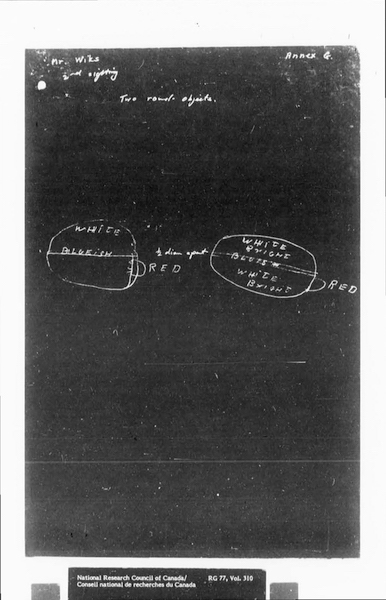 Mr. Wiks
Annex G.
2nd sighting
Two round objects.
WHITE
BLUEISH
RED
½ diam apart
WHITE
BRIGHT
BLUEISH
WHITE
BRIGHT
RED
National Research Council of Canada/
Conseil national de recherches du Canada
RG 77, Vol. 310